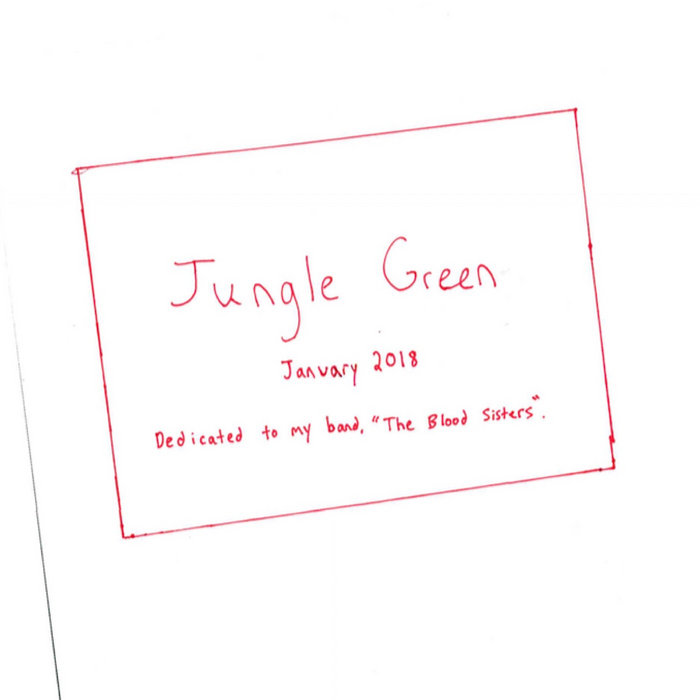 Jungle Green
January 2018
Dedicated to my band, "The Blood Sisters".